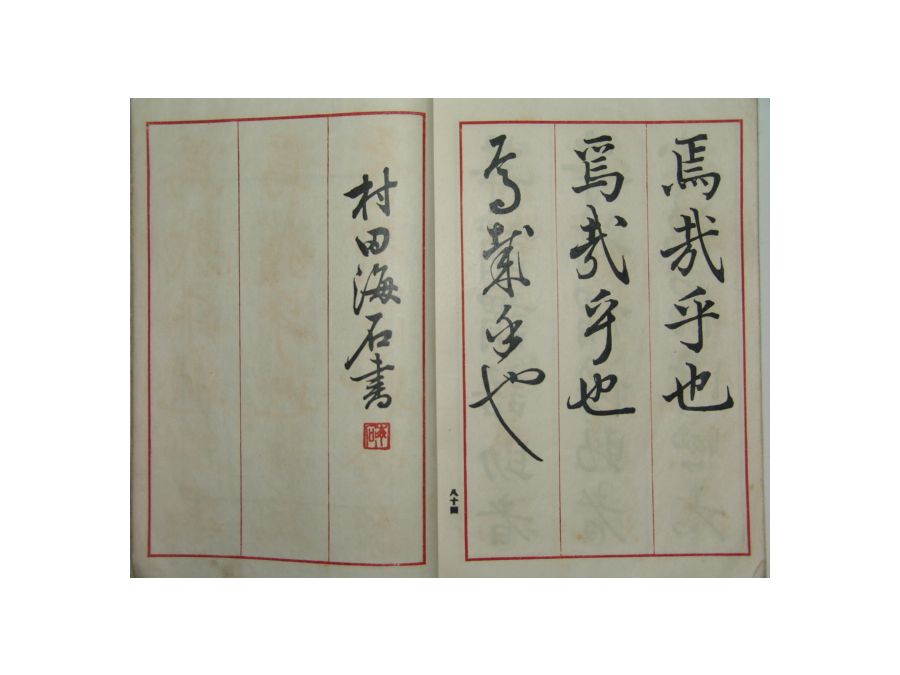 焉哉乎也
焉哉乎也
焉哉乎也
八十四
村田海石書
海石